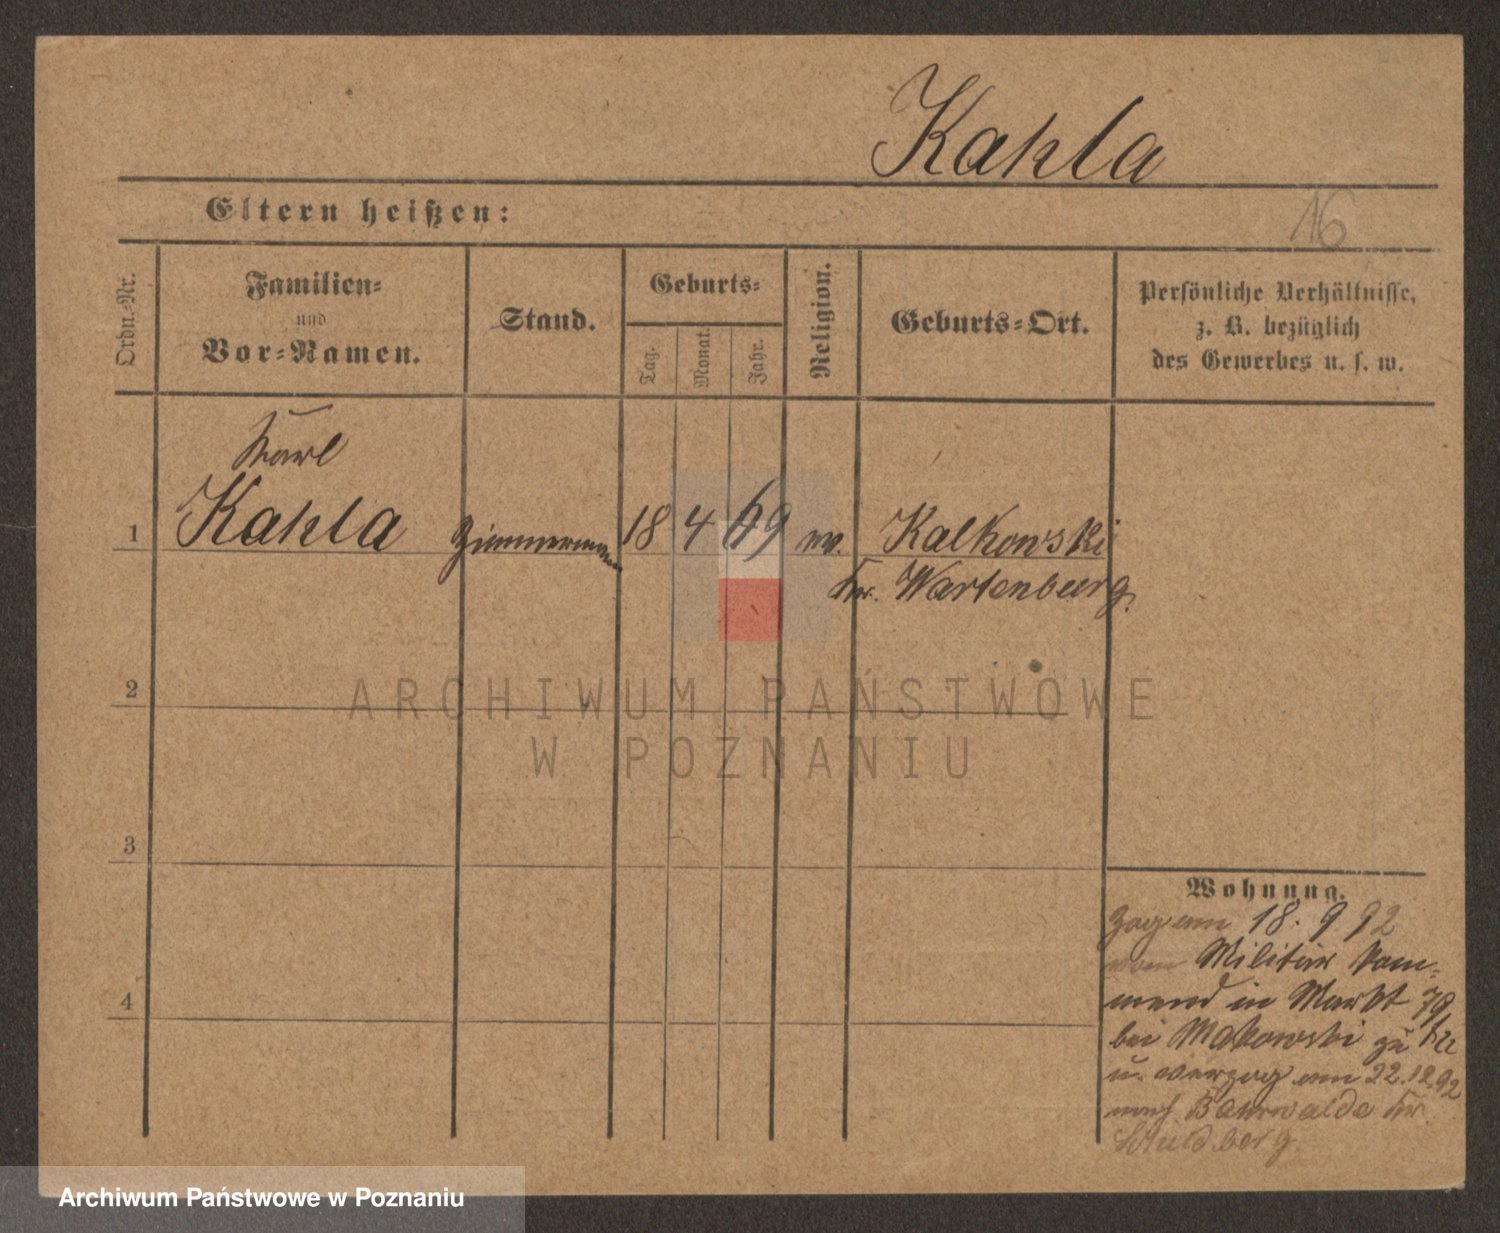 Kahla
Eltern heißen:
16
Ordn.-Nr.
Familien-
und
Vor-Namen.
Stand.
Geburts-
Tag.
Monat.
Jahr.
Religion.
Geburts-Ort.
Persönliche Verhältnisse,
z. B. bezüglich
des Gewerbes u. s. w.
Karl
1 Kahla Zimmermann 18 4 69 ev. Kalkowski
Kr. Wartenberg
2
3
4
Wohnung.
Zog am 18. 9 92
vom Militär Kom-
mend in Markt 79
bei Makowski zu
u. verzog am 22.12.92
nach Kr.
ARCHIWUM PAŃSTWOWE
W POZNANIU
Archiwum Państwowe w Poznaniu